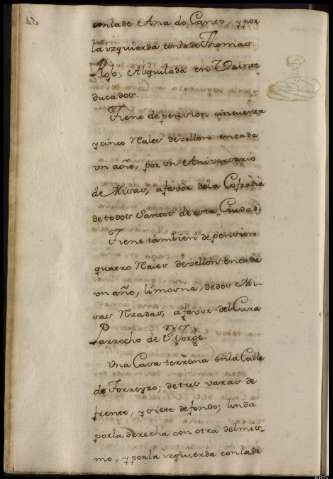 con la de Ana do Campo, y por
la izquierda con la de Thomas
Rojo, Regulada en
ducados
Tiene de pension, cinquenta
y cinco Reales de vellon en cada
un año, por un Anniversario
de Misas, a favor de la Cofradia
de todos Santos de esta Ciudad
Tiene tambien de pension
quatro Reales de vellon en cada
un año, limosna, de dos Mi
sas Rezadas, a favor del Cura
Parrocho de Sn. Jorge
Una Casa terrena en la Calle
de Torreyro, de tres varas de
frente, y siete de fondo; linda
por la derecha con otra del mis
mo, y por la izquierda con la de